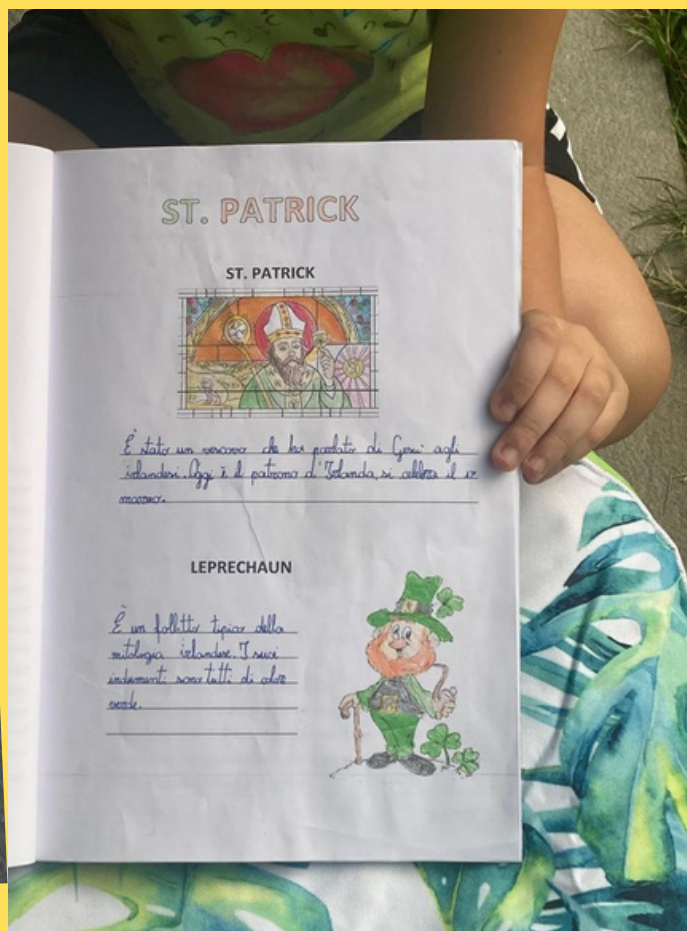 ST. PATRICK
ST. PATRICK
È stato un vescovo che ha parlato di Gesù agli
irlandesi. Oggi è il patrono d'Irlanda, si celebra il 17
marzo.
LEPRECHAUN
È un folletto tipico della
mitologia irlandese. I suoi
indumenti sono tutti di colore
verde.